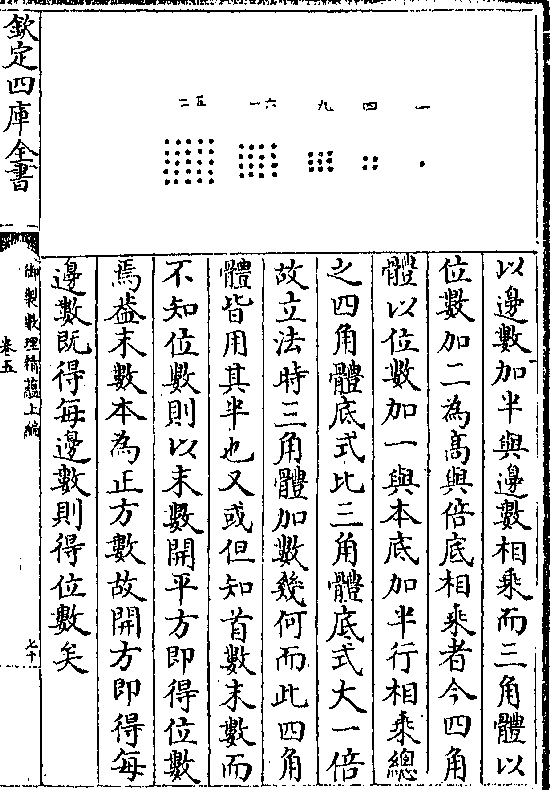 以邊數加半與邊數相乘而三角體以
位數加二為髙與倍底相乘者今四角
體以位數加一與本底加半行相乘總
之四角體底式比三角體底式大一倍
故立法時三角體加數幾何而此四角
體皆用其半也又或但知首數末數而
不知位數則以末數開平方即得位數
焉葢末數本為正方數故開方即得每
邊數既得每邊數則得位數矣
一
四
九
一六
二五
欽定四庫全書
御製數理精藴上編
卷五
七十